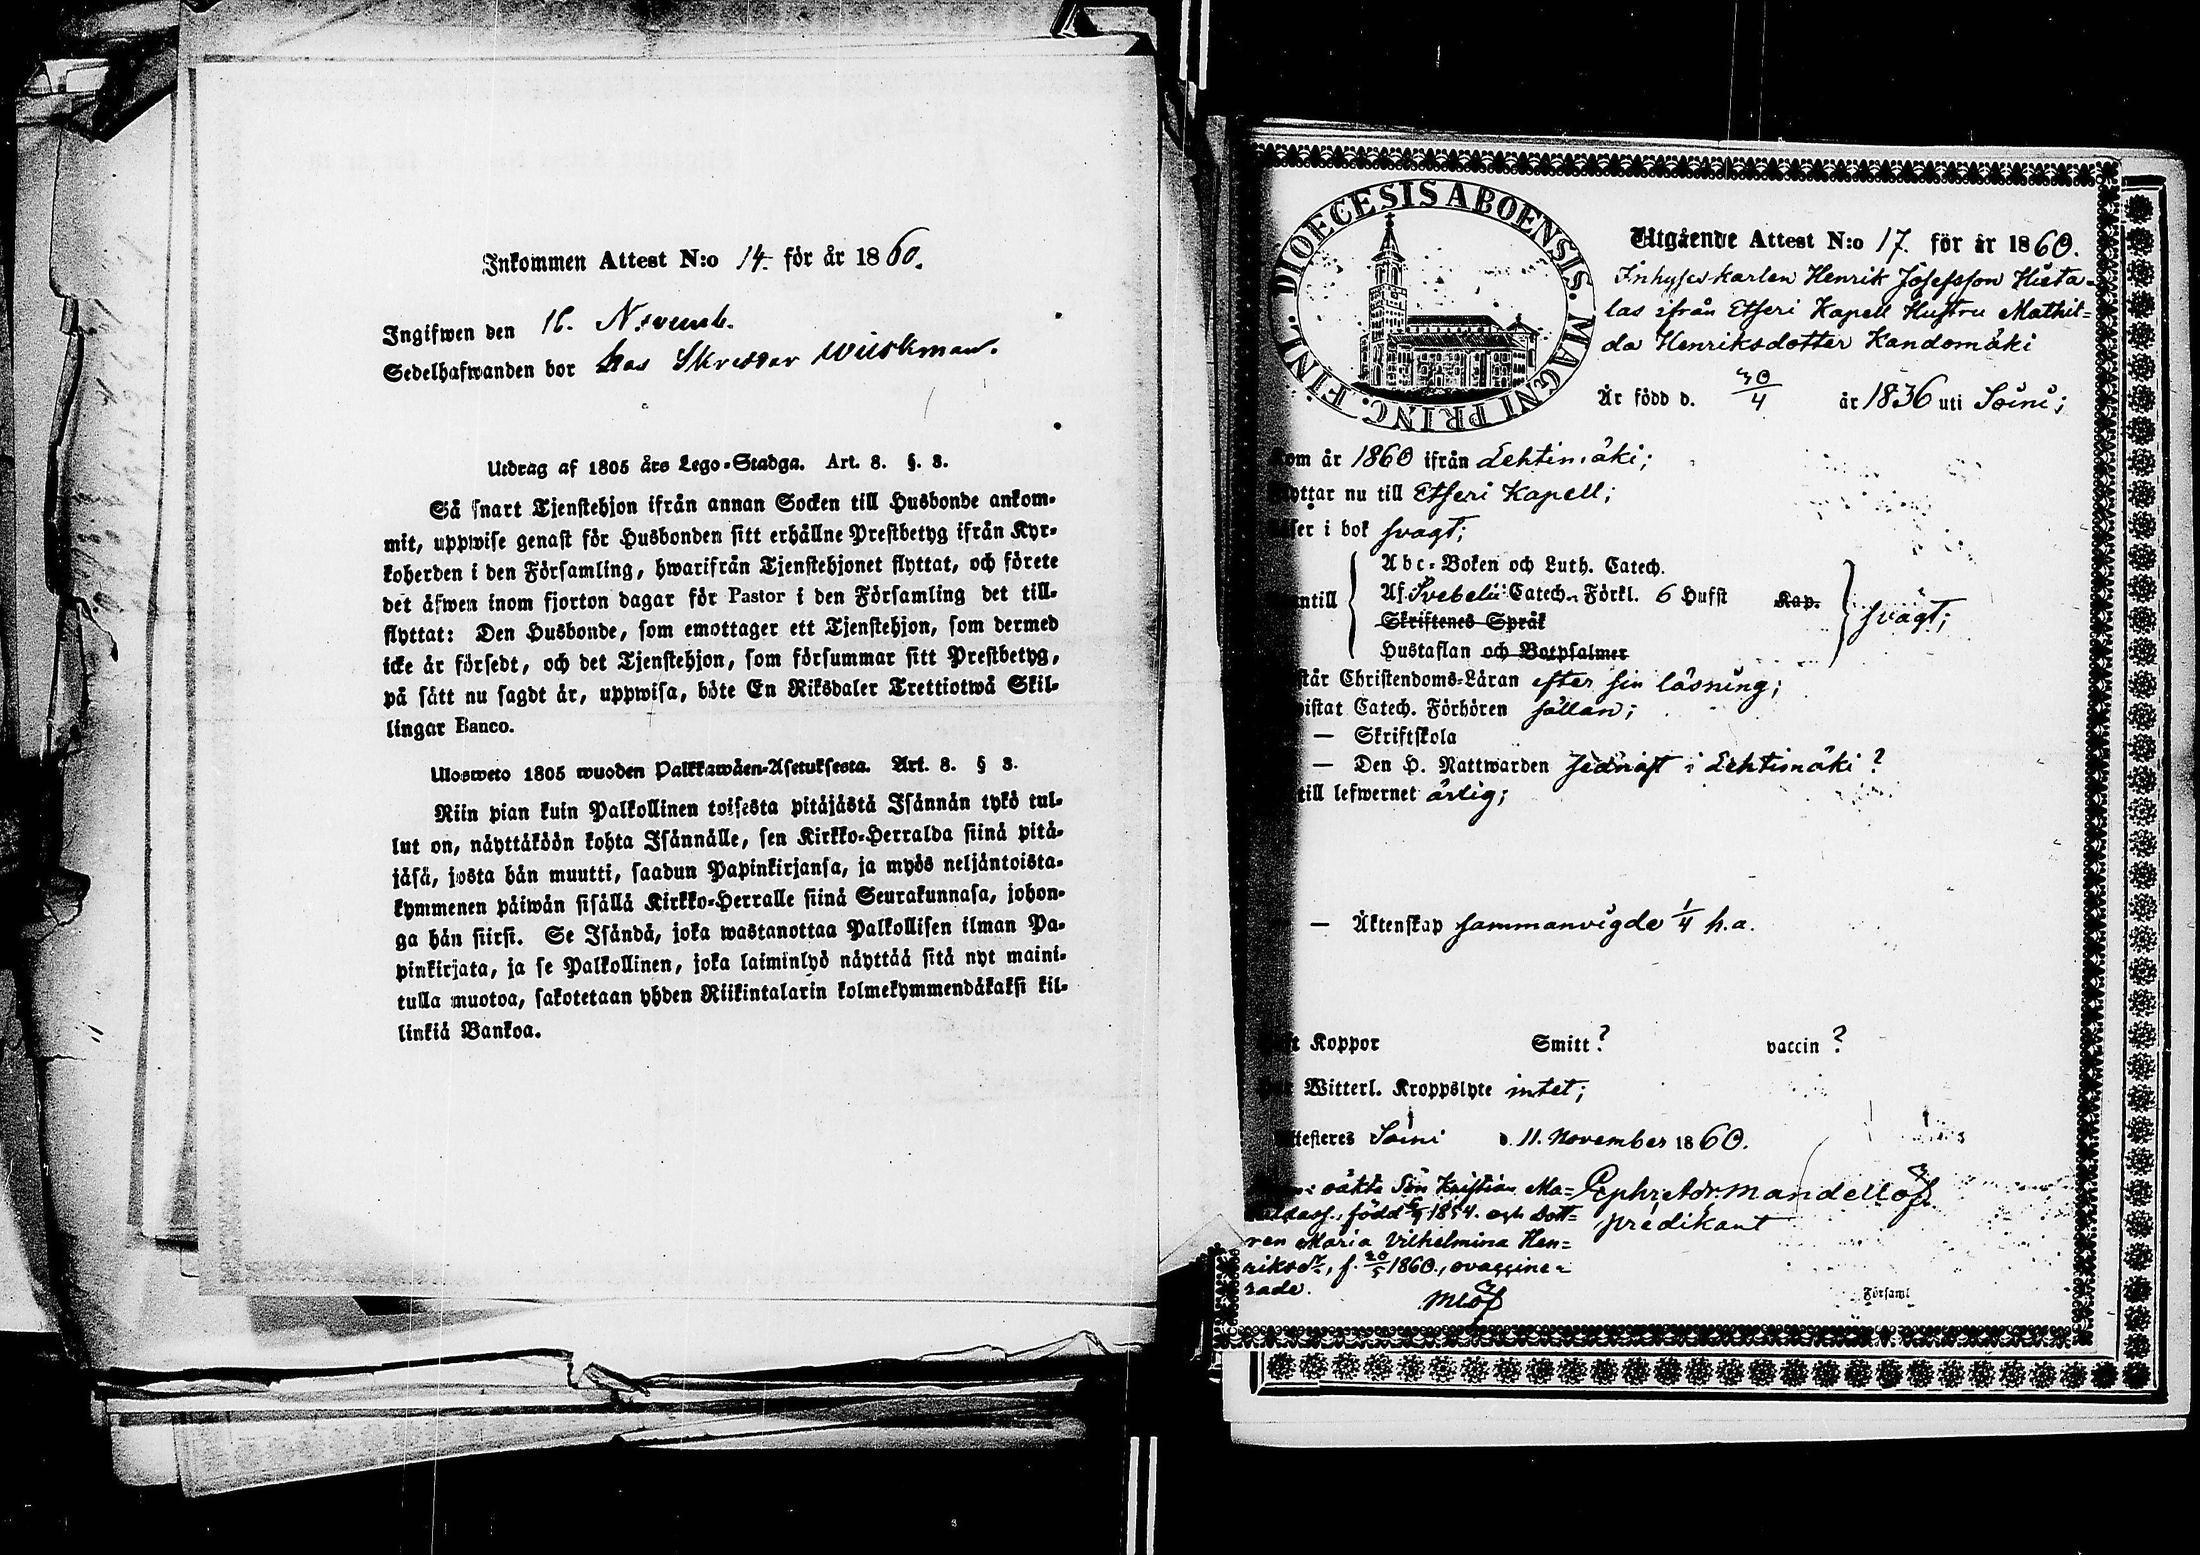 Inkommen Attest N:o 14. för år 1860.
Ingifwen den 16. Novemb.
Sedelhafwanden bor hos Skreddar Wiiskman.
Utdrag af 1805 års Lego-Stadga. Art. 8. §. 8.
Så snart Tjenstehjon ifrån annan Socken till Husbonde ankom-
mit, uppwise genast för Husbonden sitt erhållne Prestbetyg ifrån Kyr-
koherden i den Församling, hwarifrån Tjenstehjonet flyttat, och förete
det äfwen inom fjorton dagar för Pastor i den Församling det till-
flyttat: Den Husbonde, som emottager ett Tjenstehjon, som dermed
icke är försedt, och det Tjenstehjon, som försummar sitt Prestbetyg,
på sätt nu sagdt är, uppwisa, böte En Riksdaler Trettiotwå Skil-
lingar Banco.
Ulosweto 1805 wuoden Palkkawäen-Asetuksesta. Art. 8. § 8.
Niin pian kuin Palkollinen toisesta pitäjästä Isännän tykö tul-
lut on, näyttäköön kohta Isännälle, sen Kirkko-Herralda siinä pitä-
jäsä, josta hän muutti, saadun Papinkirjansa, ja myös neljäntoista-
kymmenen päiwän sisällä Kirkko-Herralle siinä Seurakunnasa, johon-
ga hän siirsi. Se Isändä, joka wastanottaa Palkollisen ilman Pa-
pinkirjata, ja se Palkollinen, joka laiminlyö näyttää sitä nyt maini-
tulla muotoa, sakotetaan yhden Riikintalarin kolmekymmendäkaksi kil-
linkiä Bankoa.
DIOECESIS ABOENSIS. MAGNI PRINC. FINL.
Utgående Attest N:o 17. för år 1860.
Inhyseskarlen Henrik Josefsson Hieta-
las ifrån Etseri Kapell Hustru Mathil-
da Henriksdotter Kandomäki
Är född d. 30/4 år 1836 uti Soini;
Kom år 1860 ifrån Lehtimäki;
Flyttar nu till Etseri Kapell;
Läser i bok svagt;
Abc-Boken och Luth. Catech.
Af Svebelii Catech. Förkl. 6 Hufst Kap.
utantill svagt;
Skriftenes Språk
Hustaflan och Botpsalmer
Förstår Christendoms-Läran efter sin läsning;
Bewistat Catech. Förhören sällan;
— Skriftskola
— Den H. Nattwarden sednast i Lehtimäki?
till lefwernet ärlig;
— Äktenskap sammanvigde 1/4 h.a.
Haft Koppor Smitt? vaccin?
Har Witterl. Kroppslyte intet;
Attesteres Soini d. 11. November 1860.
oäkta Son Kristian Ma-
född 1854. och Dott-
ren Maria Vilhelmina Hen-
riksdr, f. 20/5 1860., ovaccine-
rade.
Mlöf
Ephr. Adr. Mandellöf.
predikant
Församl